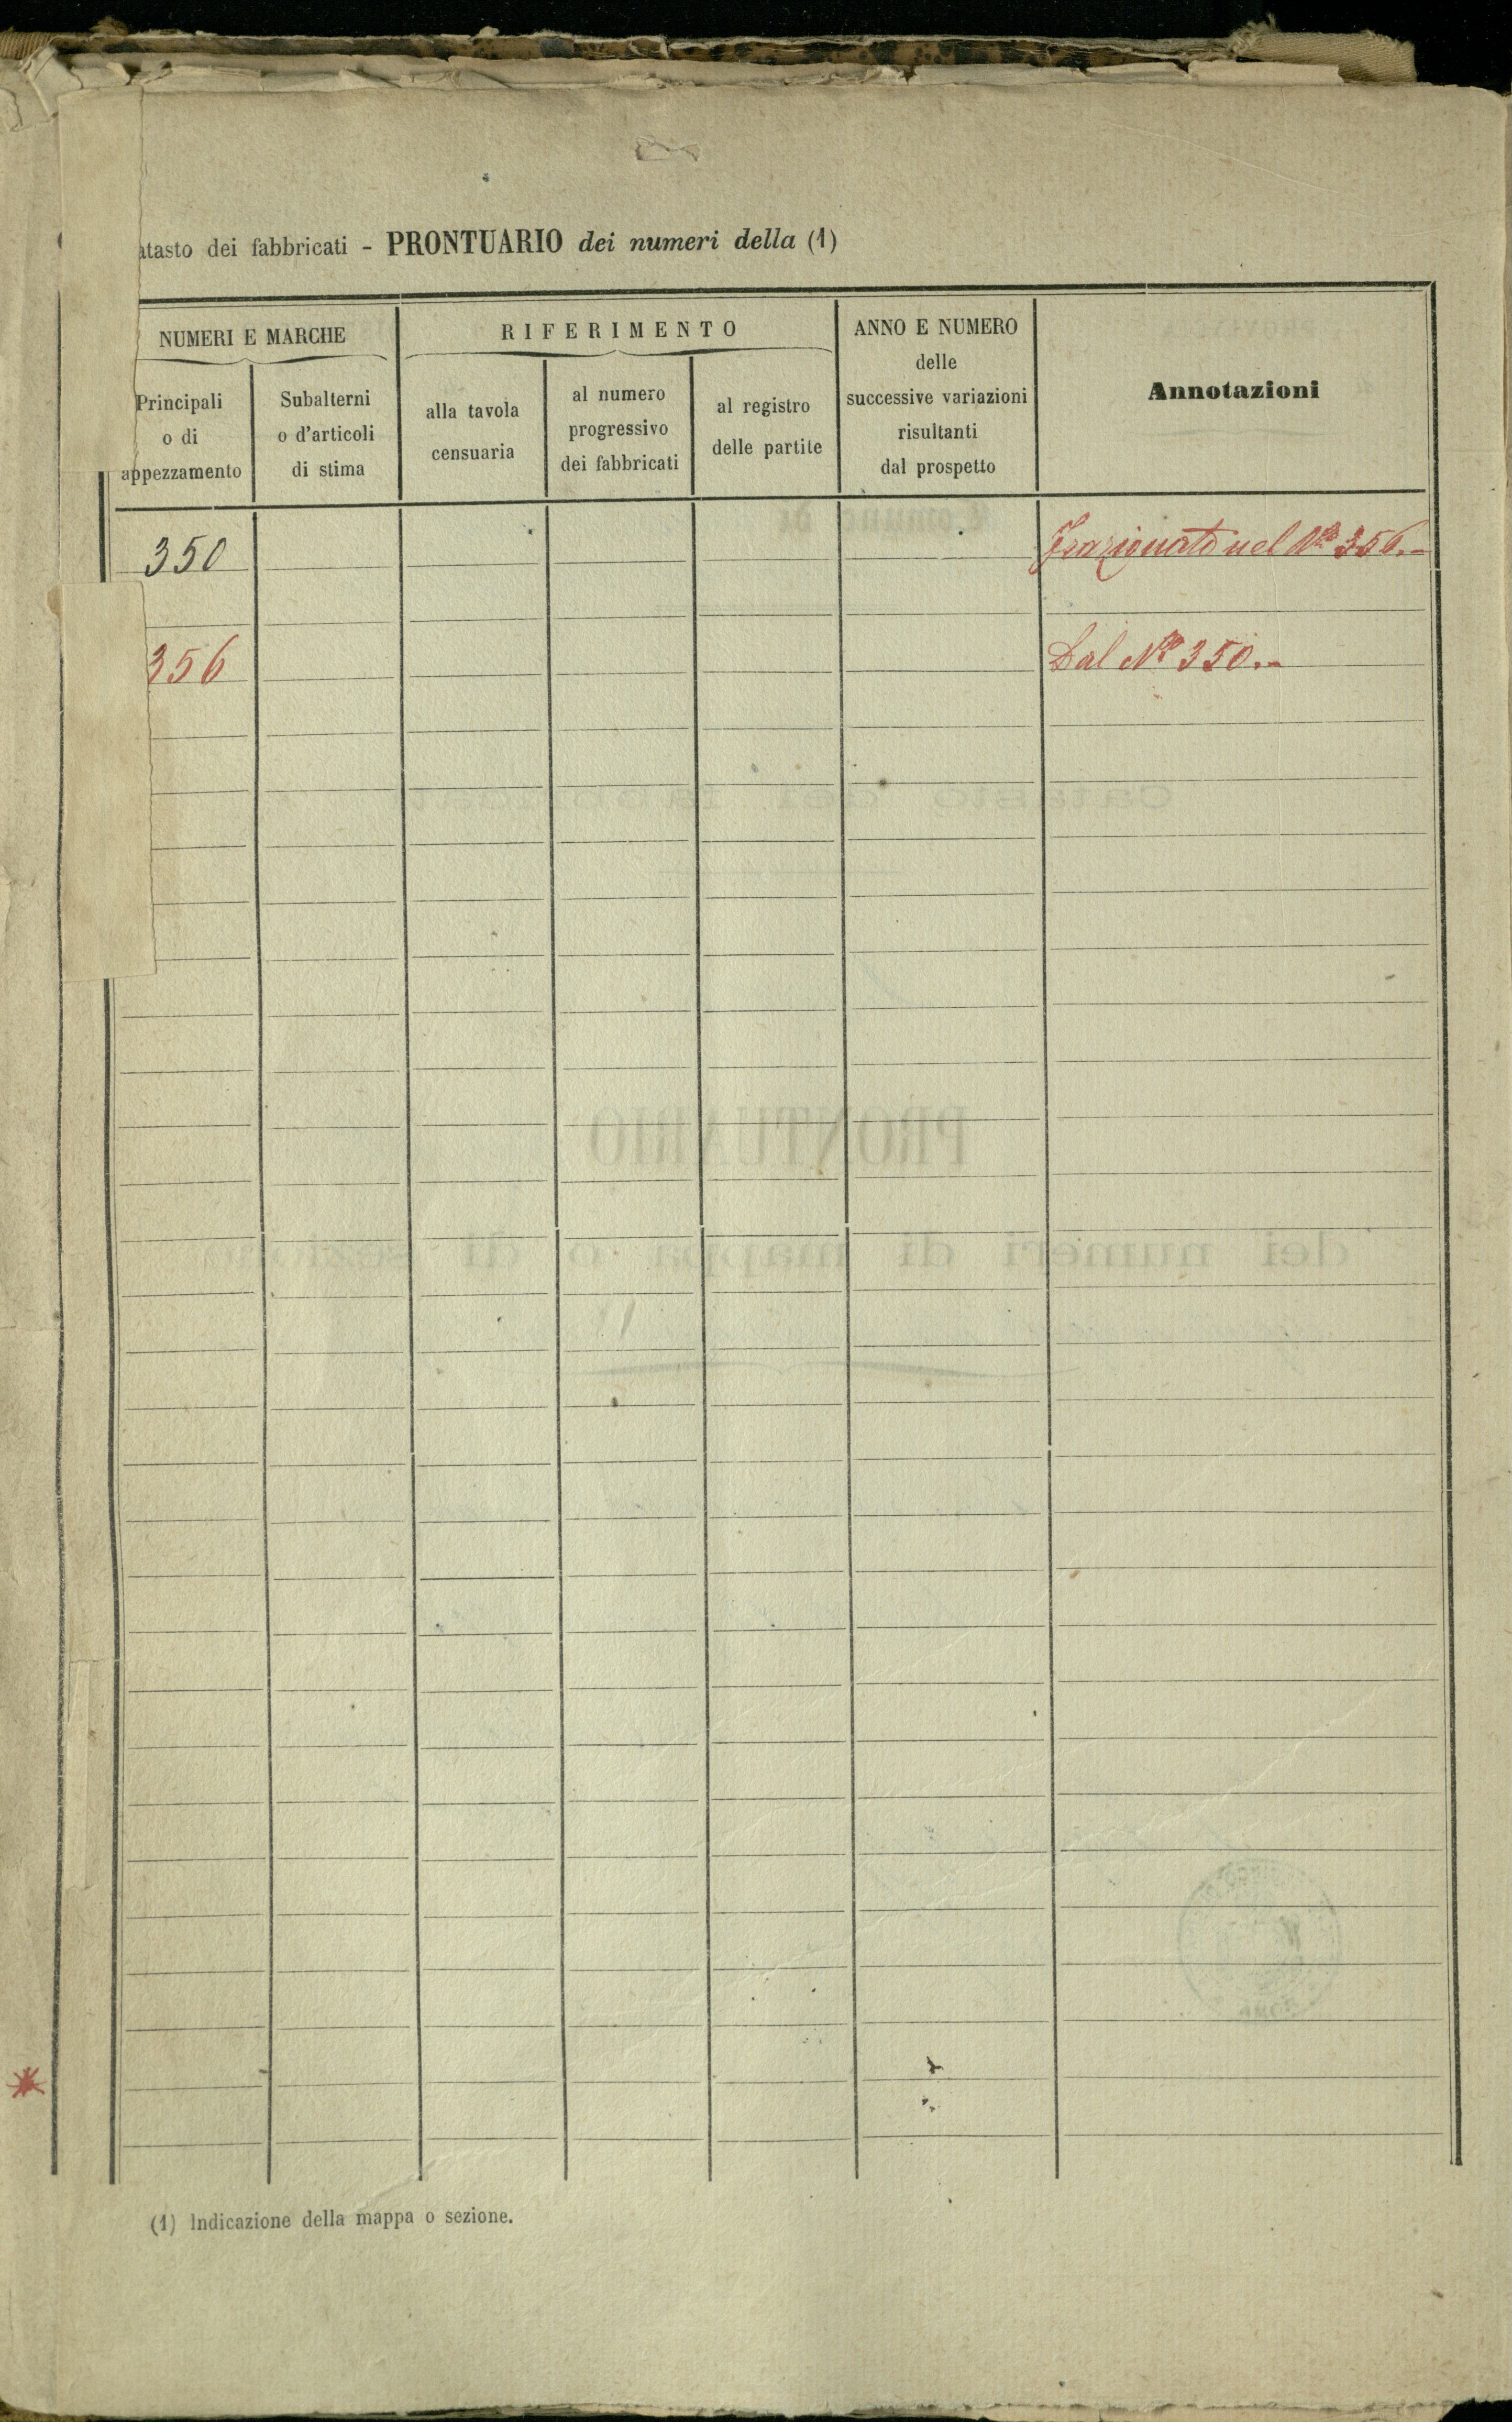 atasto dei fabbricati - PRONTUARIO dei numeri della (1)
NUMERI E MARCHE
RIFERIMENTO
ANNO E NUMERO
delle
successive variazioni
risultanti
dal prospetto
Annotazioni
Principali
o di
appezzamento
Subalterni
o d'articoli
di stima
alla tavola
censuaria
al numero
progressivo
dei fabbricati
al registro
delle partite
350
Frazionato nel No 356.-
356
Dal No 350.-
(1) Indicazione della mappa o sezione.